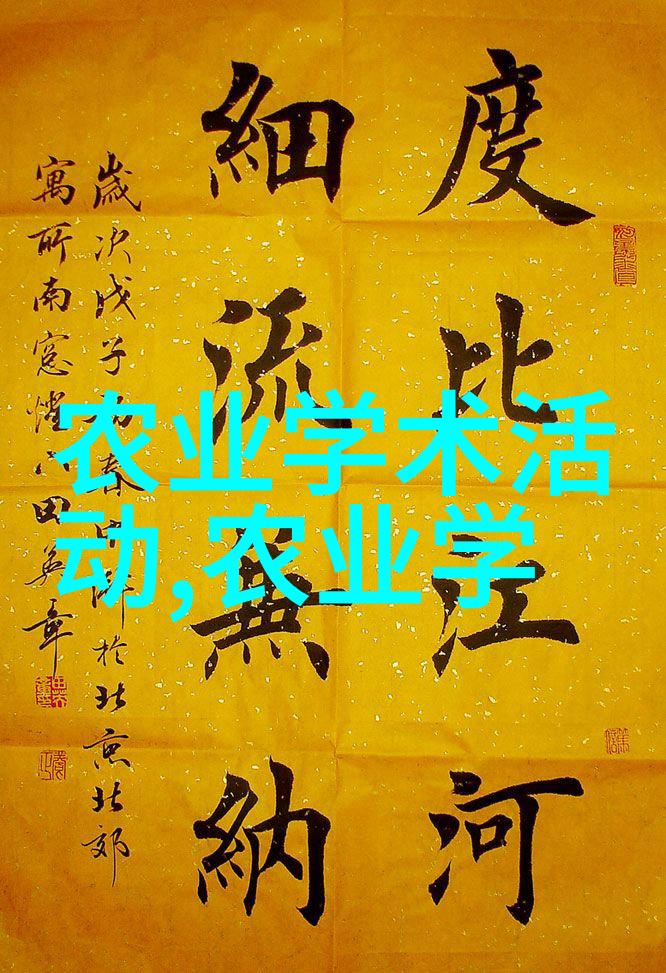 度比江河
細流無納
歲次戊子春於北京北郊
寓所南窓燈下田英章
农业学术活
动,农业学